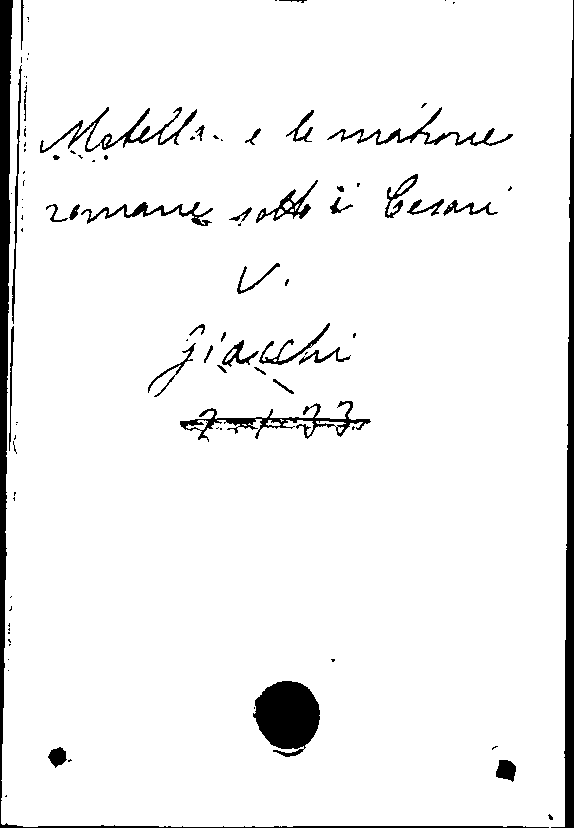 Metella e le matrone
romane sotto i Cesari
V.
Giacchi